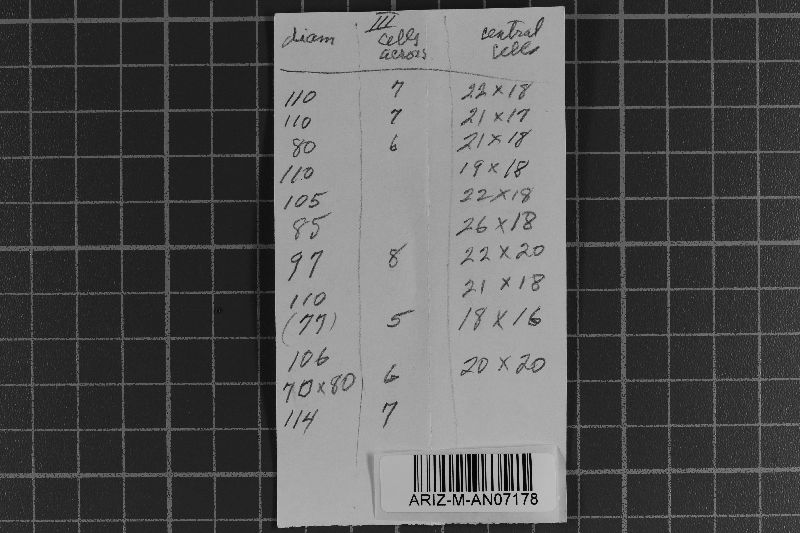 III
diam cells across central cells
110 7 22 x 18
110 7 21 x 17
80 6 21 x 18
110 19 x 18
105 22 x 18
85 26 x 18
97 8 22 x 20
110 21 x 18
(77) 5 18 x 16
106 20 x 20
70 x 80 6
114 7
ARIZ-M-AN07178